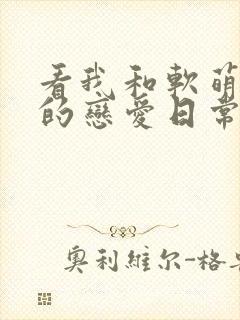 看我和軟萌
的戀愛日常
奧利維尔-格